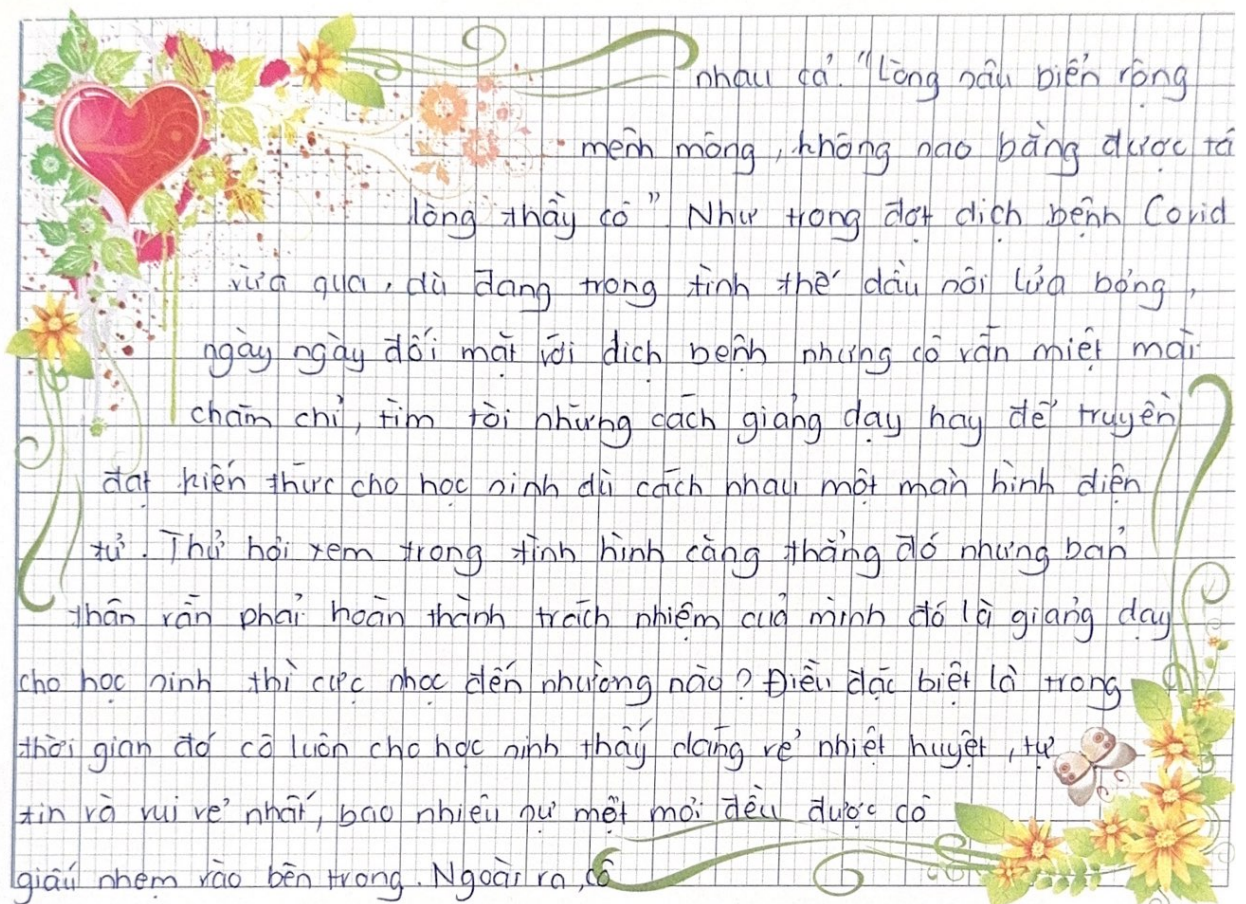 nhau cả. "Lòng sâu biển rộng
mênh mông, không nao bằng được tấ
lòng thầy cô" Như trong đợt dịch bệnh Covid
vừa qua, dù đang trong tình thế dầu sôi lửa bỏng,
ngày ngày đối mặt với dịch bệnh nhưng cô vẫn miệt mài
chăm chỉ, tìm tòi những cách giảng dạy hay để truyền
đạt kiến thức cho học sinh dù cách nhau một màn hình điện
tử. Thử hỏi xem trong tình hình căng thẳng đó nhưng bản
thân vẫn phải hoàn thành trách nhiệm cuả mình đó là giảng dạy
cho học sinh thì cực nhọc đến nhường nào? Điều đặc biệt là trong
thời gian đó cô luôn cho học sinh thấy dáng vẻ nhiệt huyệt, tự
tin và vui vẻ nhất, bao nhiêu sự mệt mỏi đều được cô
giấu nhẹm vào bên trong. Ngoài ra, cô